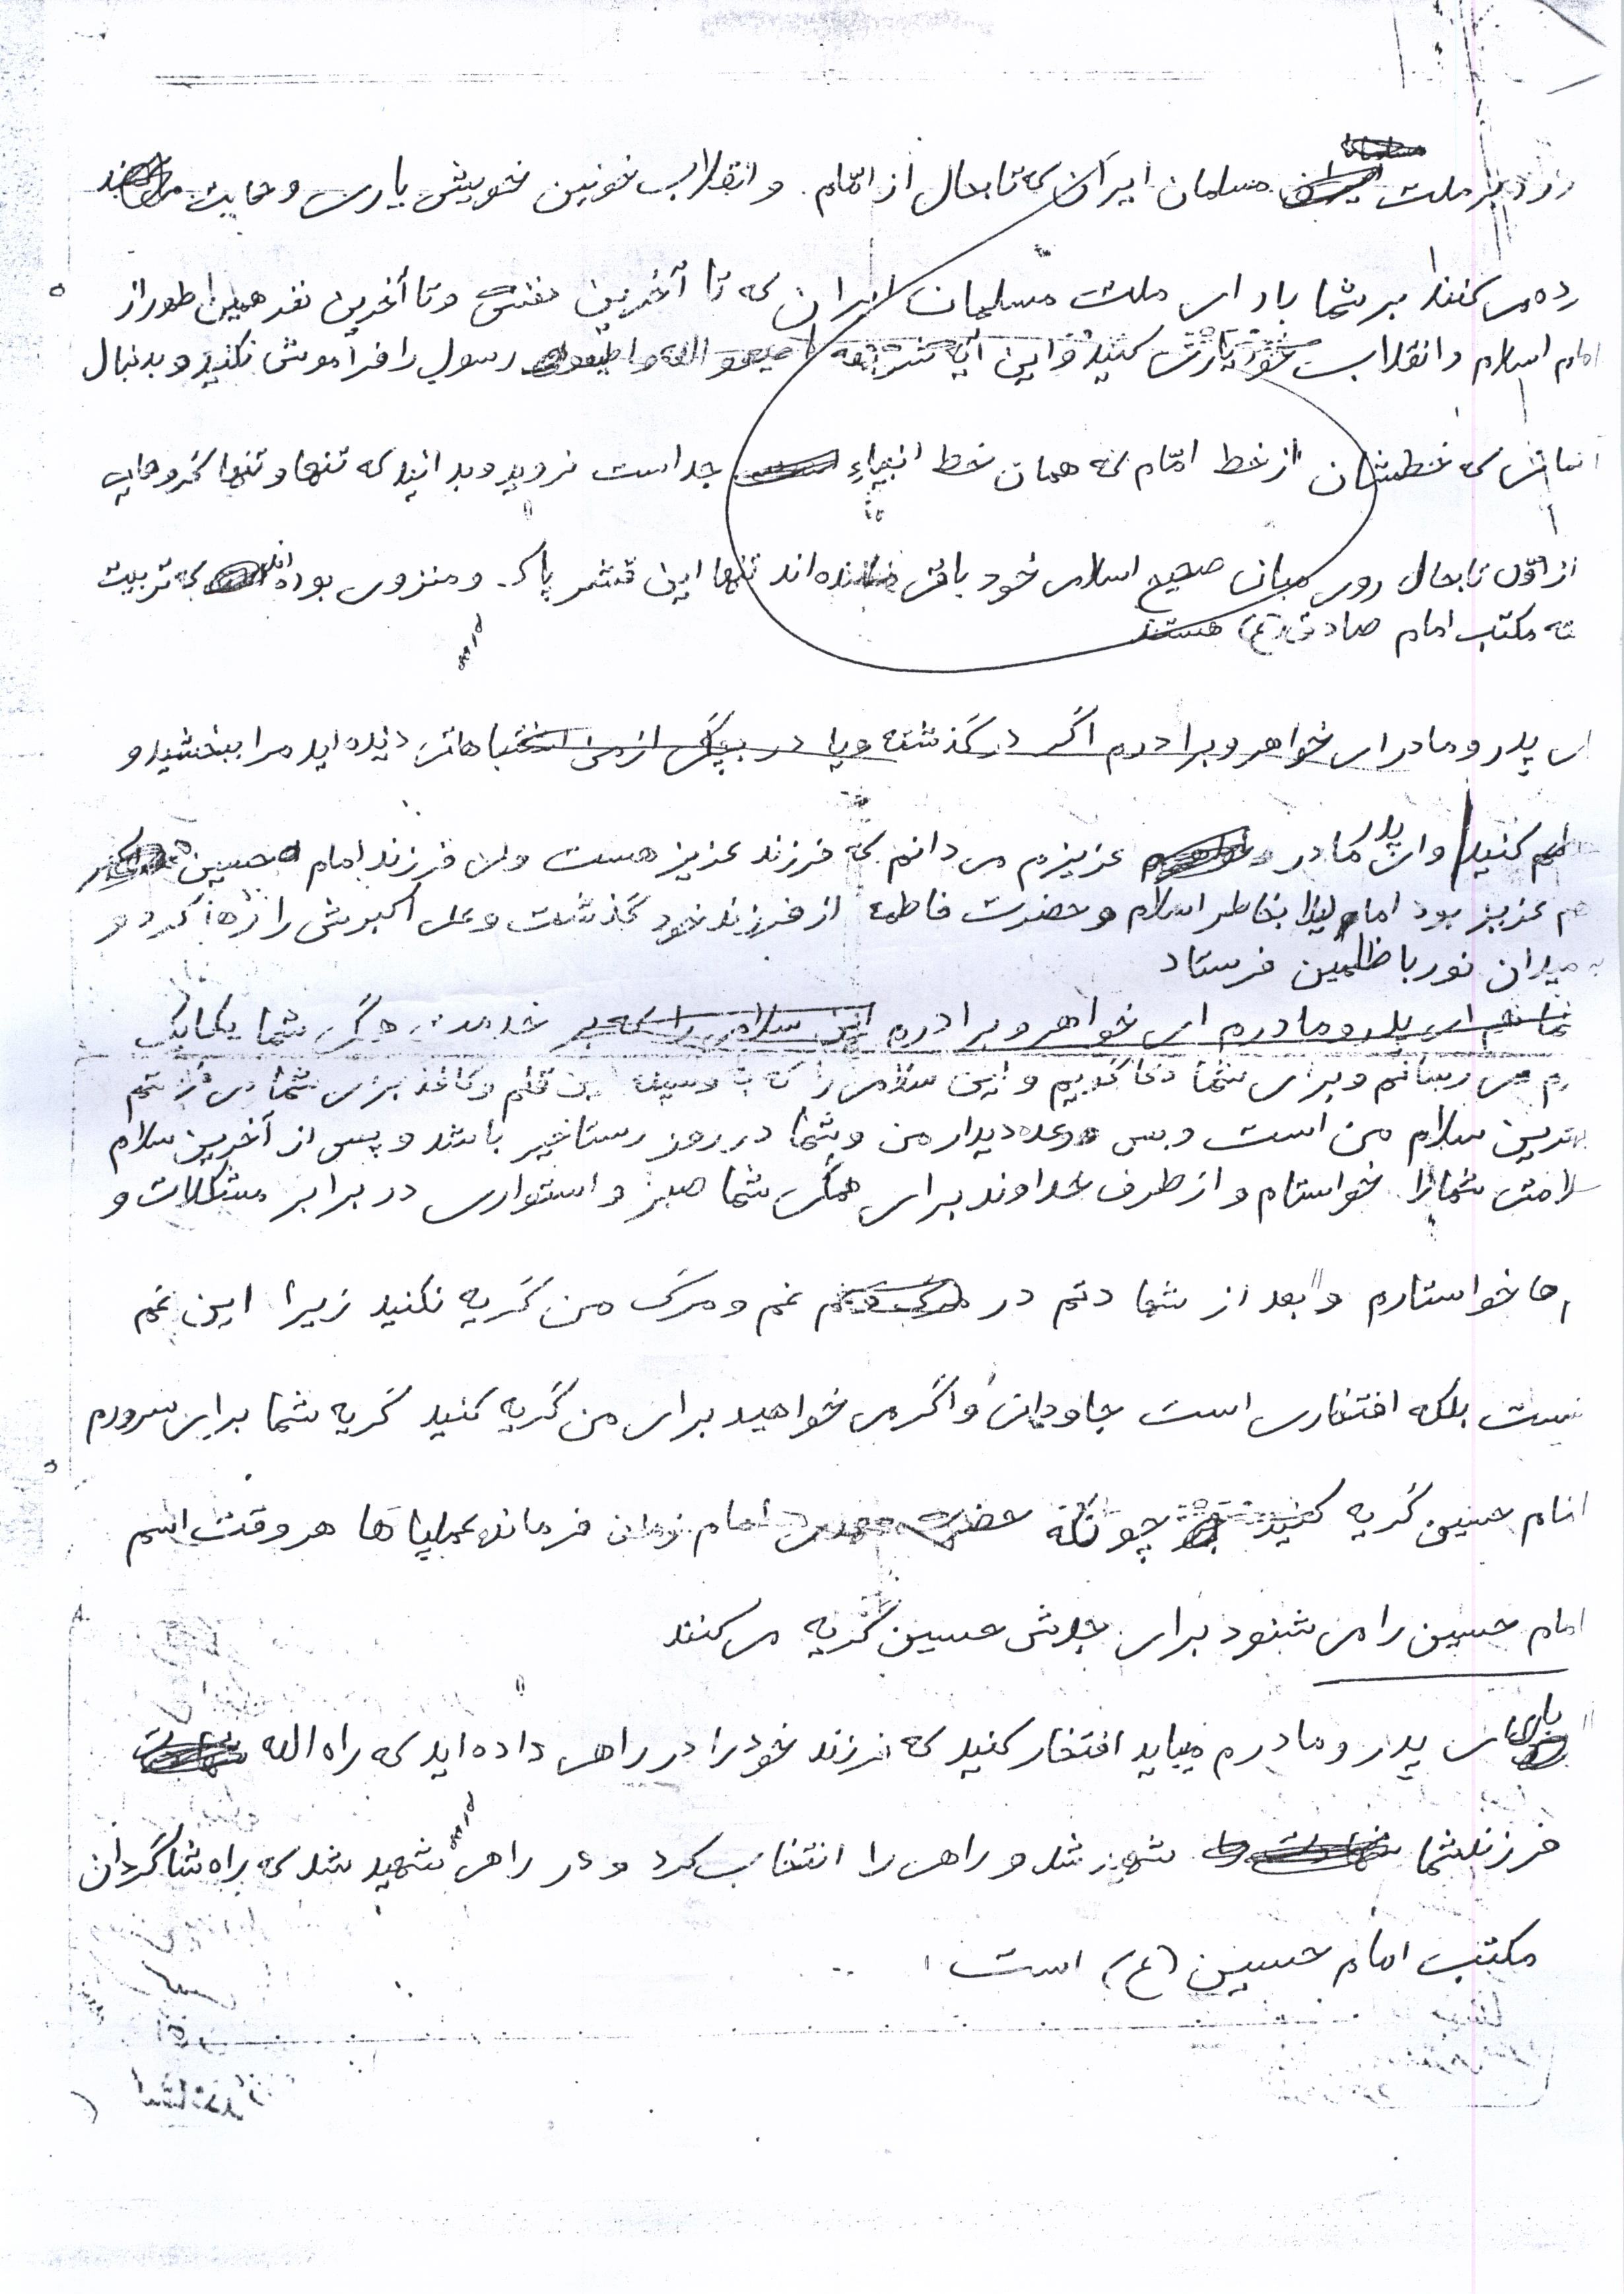 درود بر ملت مسلمان ایران که تا بحال از امام و انقلاب خونین خویش یاری و حمایت
ده می کنند بر شما باد ای ملت مسلمان ایران که تا آخرین نفس و تا آخرین نفر همین طور از
امام اسلام و انقلاب خود یاری کنید و این آیه شریفه اطیعو الله و اطیعو رسول را فراموش نکنید و بدنبال
که خطشان از خط امام که همان خط انبیاء جداست نروید و بدانید که تنها و تنها گروهایی
از اول تا بحال روی مبان صحیح اسلامی خود باقی مانده اند تنها این قشر پاک و منزوی بوده اند که تربیت
ته مکتب امام صادق (ع) هستند
ای پدر و مادر ای خواهر و برادرم اگر در گذشته و یا در بچگی از من اشتباهاتی دیده اید مرا ببخشید و
کنید و ای پدر مادر عزیزم می دانم که فرزند عزیز هست ولی فرزند امام حسین
هم عزیز بود امام بخاطر اسلام و حضرت فاطمه از فرزند خود گذشت و علی اکبرش را رها کرد و
به میدان نور با ظلمین فرستاد
ای پدر و مادرم ای خواهر و برادرم این سلامی را که بر خدمت همگی شما یکایک
می رسانم و برای شما دعا گویم و این سلامی را که با وسیله این قلم و کاغذ برای شما می نویسم
بهترین سلام من است و بس وعده دیدار من و شما در روز رستاخیر باشد و پس از آخرین سلام
سلامتی شما را خواستام و از طرف خداوند برای همگی شما صبر و استواری در برابر مشکلات و
ها خواستارم و بعد از شما دتم در غم و مرگ من گریه نکنید زیرا این غم
نیست بلکه افتخاری است جاودان و اگر می خواهید برای من گریه کنید گریه شما برای سرورم
امام حسین گریه کنید چونکه حضرت مهدی امام زمان فرمانده عملیات ها هر وقت اسم
امام حسین را می شنود برای جدش حسین گریه می کنند
ای پدر و مادرم میباید افتخار کنید که فرزند خود را در راهی داده اید که راه الله
فرزند شما شهید شد و راهی را انتخاب کرد و در راهی شهید شد که راه شاگردان
مکتب امام حسین (ع) است